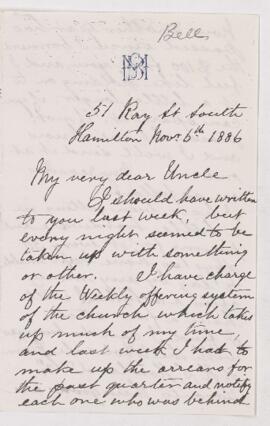 Bell
51 Ray St South
Hamilton Nov. 6th 1886
My very dear Uncle
I should have written
to you last week, but
every night seemed to be
taken up with something
or other. I have charge
of the Weekly offering system
of the church which takes
up much of my time,
and last week I had to
make up the arrears for
the past quarter and notify
each one who was behind